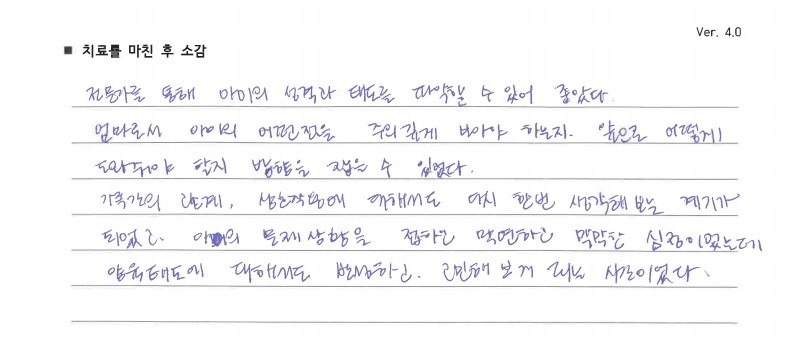 Ver. 4.0
■ 치료를 마친 후 소감
전문가를 통해 아이의 성격과 태도를 파악할 수 있어 좋았다.
엄마로서 아이의 어떤점을 주의깊게 보아야 하는지. 앞으로 어떻게
도와줘야 할지 방향을 잡을 수 있었다.
가족간의 관계, 상호작용에 대해서도 다시 한번 생각해 보는 계기가
되었고. 아이의 문제 상황을 접하고 막연하고 막막한 심정이었는데
양육태도에 대해서도 반성하고. 고민해 보게 되는 시간이었다.